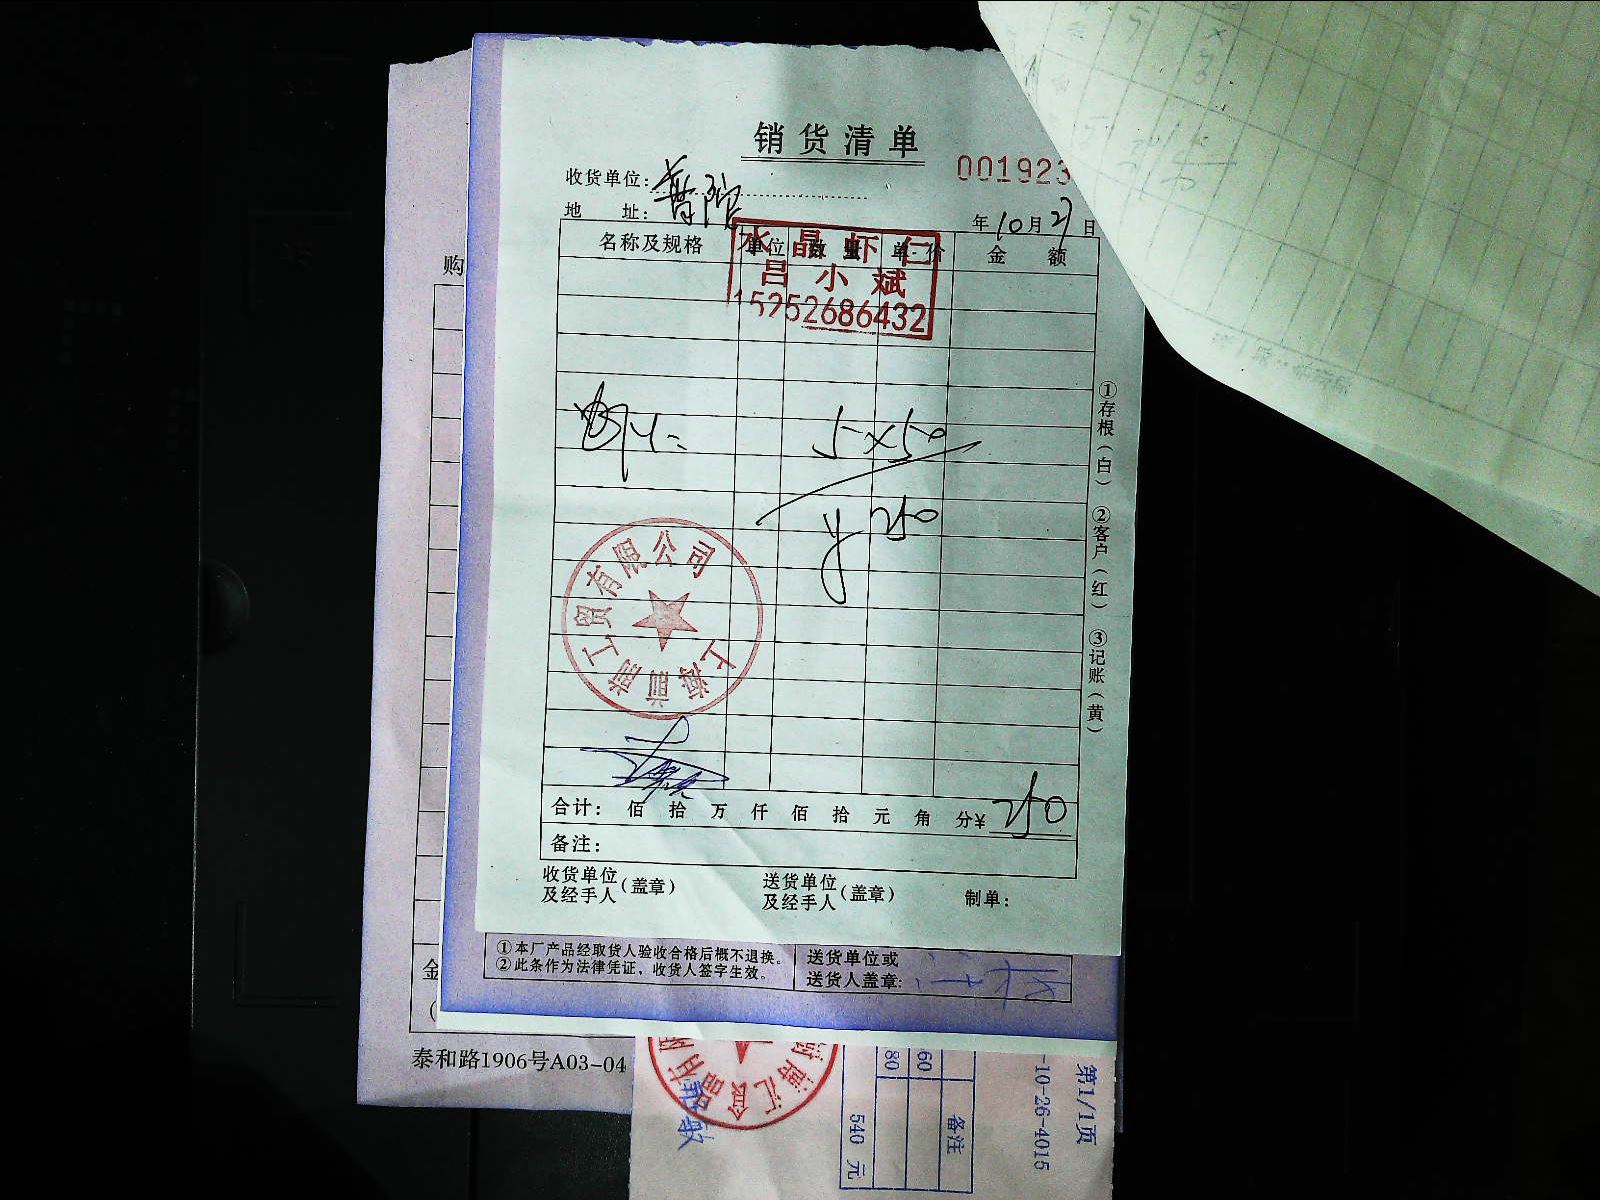 销货清单
001923
收货单位：
地 址：
年10月27日
名称及规格 单位 数量 单价 金额
水晶虾仁
吕小斌
15252686432
5×50
¥250
上海前前工贸有限公司
合计： 佰 拾 万 仟 佰 拾 元 角 分¥ 250
备注：
收货单位及经手人（盖章）
送货单位及经手人（盖章）
制单：
①存根（白） ②客户（红） ③记账（黄）
①本厂产品经取货人验收合格后概不退换。
②此条作为法律凭证，收货人签字生效。
送货单位或
送货人盖章：
购
金
泰和路1906号A03-04
第1/1页
-10-26-4015
备注
60
80
540 元